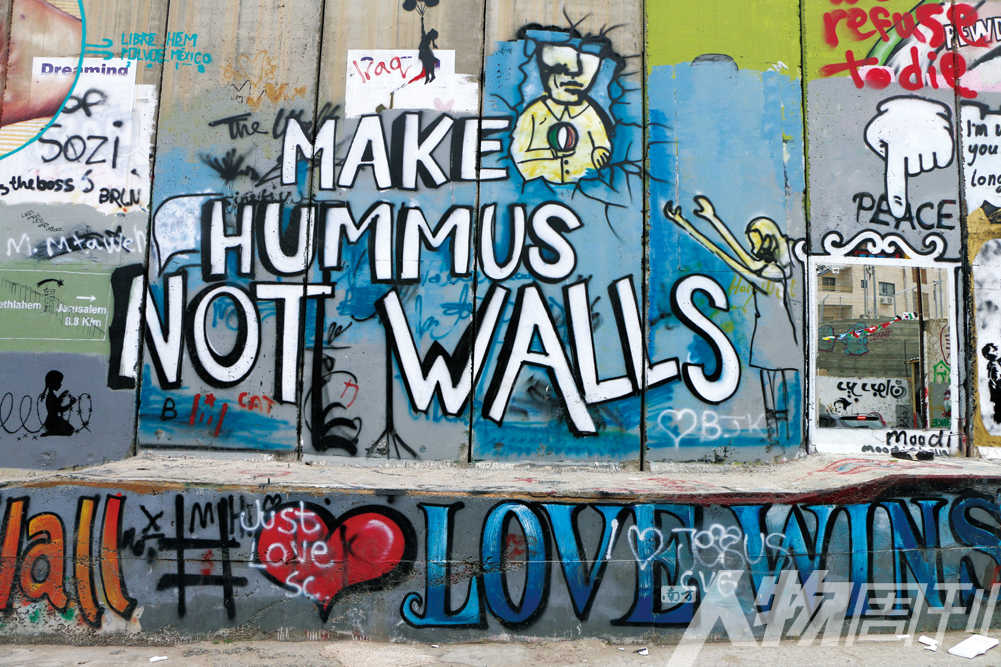 LIBRE HEM
POLVOE MÉXICO
Dreamind
of
Sozi
Iraq
refuse
to die
PEWD
The
MAKE
HUMMUS
NOT WALLS
I'm
you
long
PEACE
the boss's
BRLN
Bethlahem
Jerusalem
8.8 Km
B
CAT
BJK
Moodi
Wall
#
Just
Love
SC
LOVE WINS
Jesus
Love
人物周刊